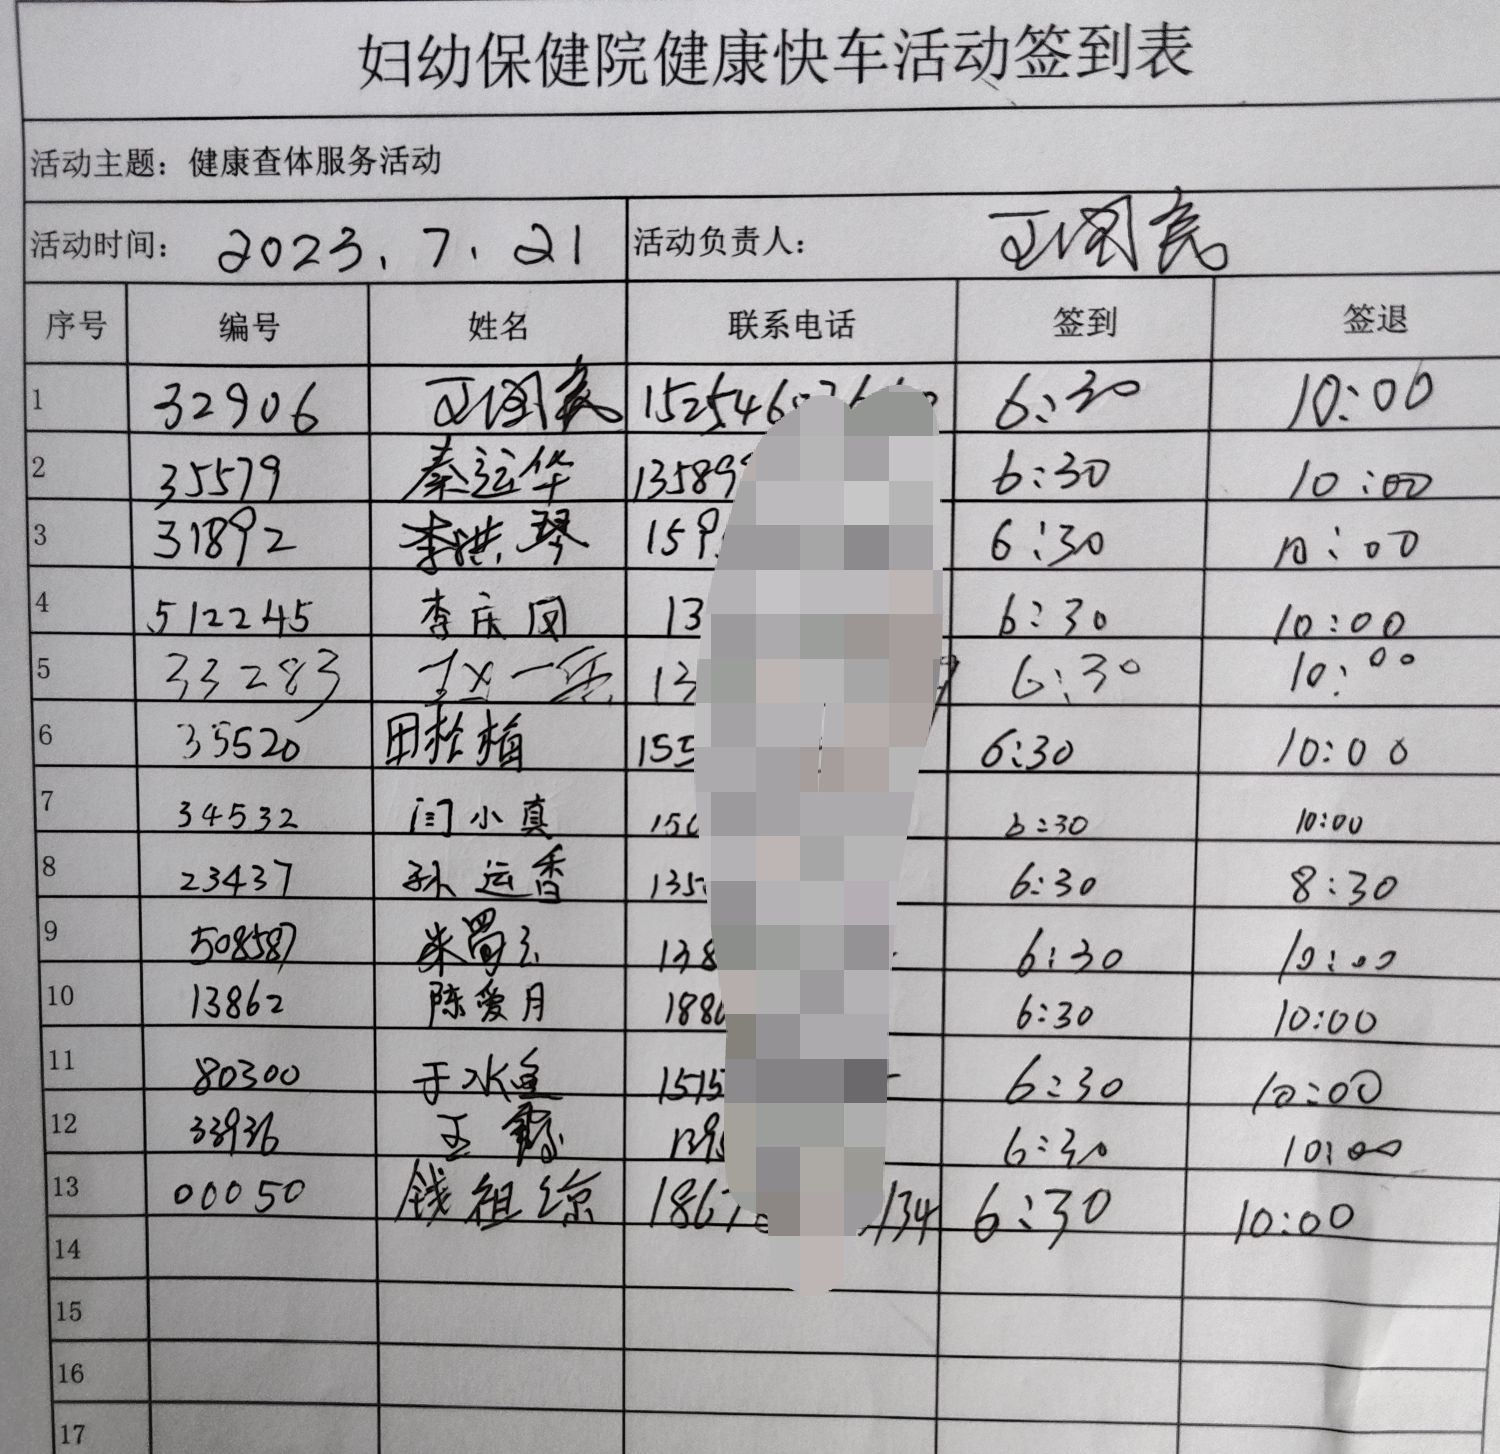 妇幼保健院健康快车活动签到表
活动主题：健康查体服务活动
活动时间： 2023.7.21 活动负责人： 王国亮
序号 编号 姓名 联系电话 签到 签退
1 32906 王国亮 15254 6:30 10:00
2 35579 秦运华 13589 6:30 10:00
3 31892 李洪琴 159 6:30 10:00
4 512245 李庆凤 13 6:30 10:00
5 33283 13 6:30 10:00
6 35520 田栓梅 155 6:30 10:00
7 34532 闫小真 150 6:30 10:00
8 23437 孙运香 135 6:30 8:30
9 508587 138 6:30 10:00
10 13862 陈爱月 188 6:30 10:00
11 80300 于水鱼 1515 6:30 10:00
12 33936 王 139 6:30 10:00
13 00050 钱祖琼 186 134 6:30 10:00
14
15
16
17